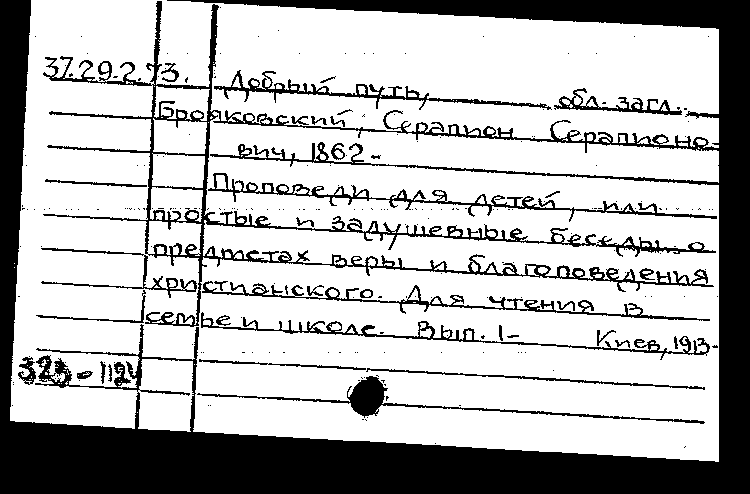 37.29.2.73. Добрый путь, обл. загл.
Брояковский, Серапион Серапионо-
вич, 1862-
Проповеди для детей, или
простые и задушевные беседы о
предметах веры и благоповедения
христианского. Для чтения в
семье и школе. Вып. 1- Киев, 1913-
323-1124